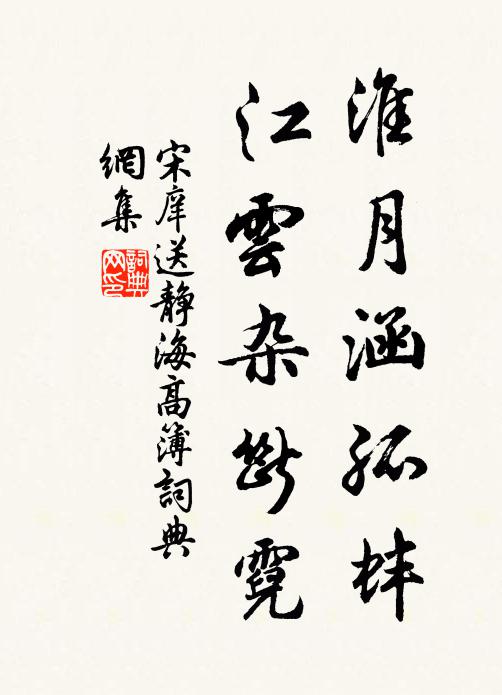 淮月涵孤蚌
江雲杂斷霓
宋庠送静海高簿詞典
網集
詞典
网印